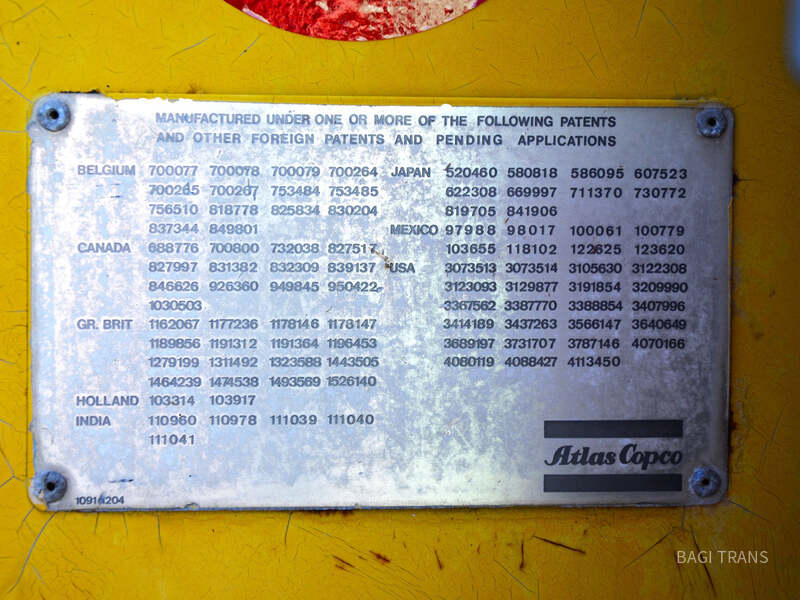 MANUFACTURED UNDER ONE OR MORE OF THE FOLLOWING PATENTS
AND OTHER FOREIGN PATENTS AND PENDING APPLICATIONS
BELGIUM 700077 700078 700079 700264
700265 700267 753484 753485
756510 818778 825834 830204
837344 849801
CANADA 688776 700800 732038 827517
827997 831382 832309 839137
846626 926360 949845 950422
1030503
GR. BRIT 1162067 1177236 1178146 1178147
1189856 1191312 1191364 1196453
1279199 1311492 1323588 1443505
1464239 1474538 1493569 1526140
HOLLAND 103314 103917
INDIA 110960 110978 111039 111040
111041
JAPAN 520460 580818 586095 607523
622308 669997 711370 730772
819705 841906
MEXICO 97988 98017 100061 100779
103655 118102 122625 123620
USA 3073513 3073514 3105630 3122308
3123093 3129877 3191854 3209990
3367562 3387770 3388854 3407996
3414189 3437263 3566147 3640649
3689197 3731707 3787146 4070166
4080119 4088427 4113450
Atlas Copco
BAGI TRANS